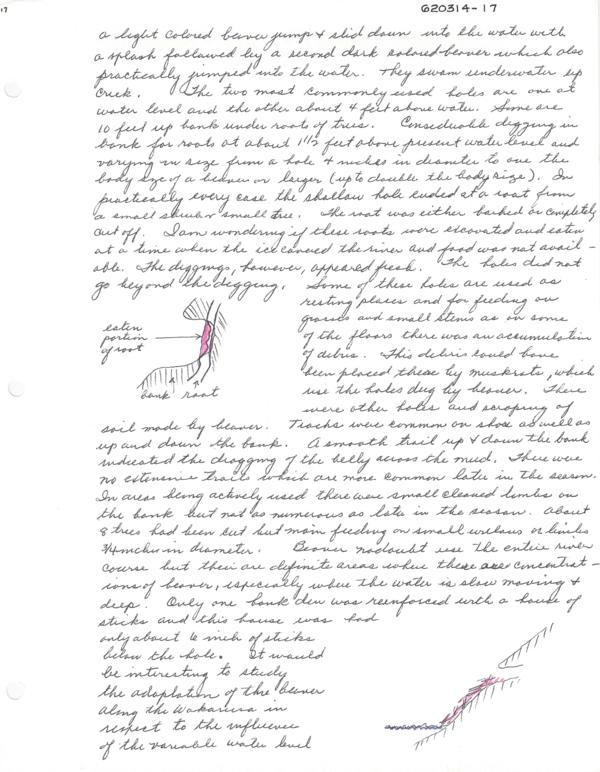 17
620314-17
a light colored beaver jump & slid down into the water with
a splash followed by a second dark colored beaver which also
practically jumped into the water. They swam underwater up
Creek. The two most commonly used holes are one at
water level and the other about 4 feet above water. Some are
10 feet up bank under roots of trees. Considerable digging in
bank for roots at about 1 1/2 feet above present water level and
varying in size from a hole 4 inches in diameter to one the
body size of a beaver or larger (up to double the body size). In
practically every case the shallow hole ended at a root from
a small shrub or small tree. The root was either barked or completely
cut off. I am wondering if these roots were excavated and eaten
at a time when the ice covered the river and food was not avail-
able. The diggings, however, appeared fresh. The holes did not
go beyond the digging. Some of these holes are used as
resting places and for feeding on
grasses and small stems as on some
of the floors there was an accumulation
of debris. This debris could have
been placed there by muskrats, which
use the holes dug by beaver. There
were other holes and scraping of
eaten
portion
of root
bank root
soil made by beaver. Tracks were common on shore as well as
up and down the bank. A smooth trail up & down the bank
indicated the dragging of the belly across the mud. There were
no extensive trails which are more common later in the season.
In areas being actively used there were small cleaned limbs on
the bank but not as numerous as late in the season. About
8 trees had been cut but main feeding on small willows or limbs
3/4 inches in diameter. Beaver no doubt use the entire river
course but their are definite areas where these are concentrat-
ions of beaver, especially where the water is slow moving &
deep. Only one bank den was reenforced with a house of
sticks and this house was had
only about 6 inch of sticks
below the hole. It would
be interesting to study
the adaptation of the beaver
along the Wakarusa in
respect to the influence
of the variable water level